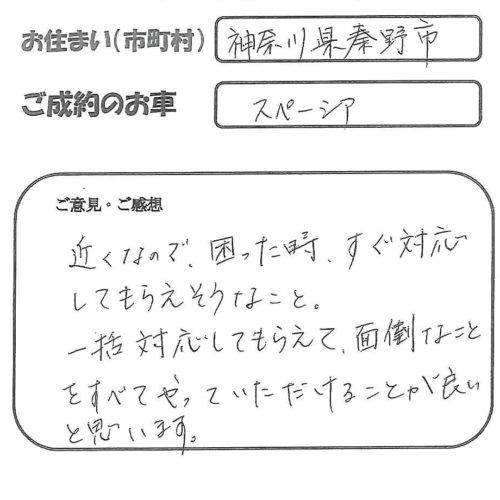 お住まい(市町村) 神奈川県秦野市
ご成約のお車 スペーシア
ご意見・ご感想
近くなので、困った時、すぐ対応
してもらえそうなこと。
一括対応してもらえて、面倒なこと
をすべてやっていただけることが良い
と思います。